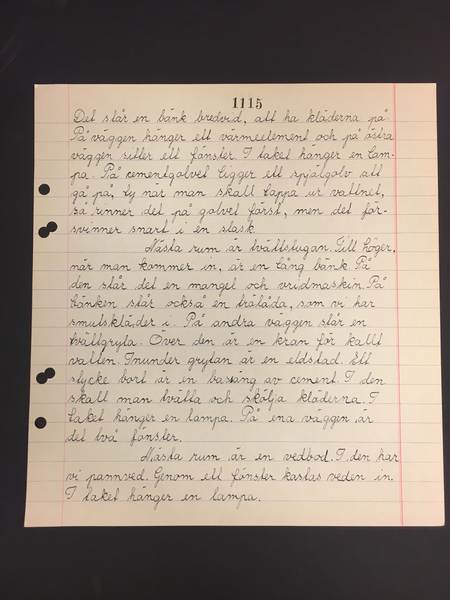 1115
Det står en bänk bredvid, att ha kläderna på.
På väggen hänger ett värmeelement och på östra
väggen sitter ett fönster. I taket hänger en lam-
pa. På cementgolvet ligger ett spjälgolv att
gå på, ty när man skall tappa ur vattnet,
så rinner det på golvet först, men det för-
svinner snart i en slask.
Nästa rum är tvättstugan. Till höger,
när man kommer in, är en lång bänk. På
den står det en mangel och vridmaskin. På
bänken står också en trälåda, som vi har
smutskläder i. På andra väggen står en
tvättgryta. Över den är en kran för kallt
vatten. Inunder grytan är en eldstad. Ett
stycke bort är en bassäng av cement. I den
skall man tvätta och skölja kläderna. I
taket hänger en lampa. På ena väggen är
det två fönster.
Nästa rum är en vedbod. I den har
vi pannved. Genom ett fönster kastas veden in.
I taket hänger en lampa.